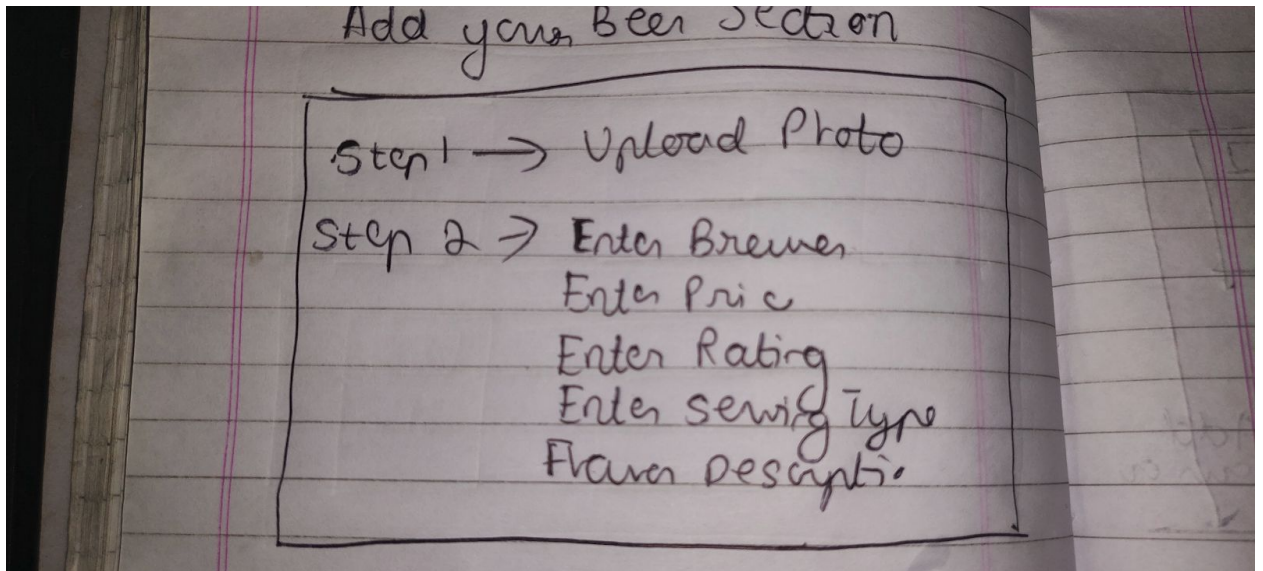 Add your Beer Section
Step 1 → Upload Photo
Step 2 → Enter Brewer
Enter Pric
Enter Rating
Enter Serving Type
Flavor Descriptio